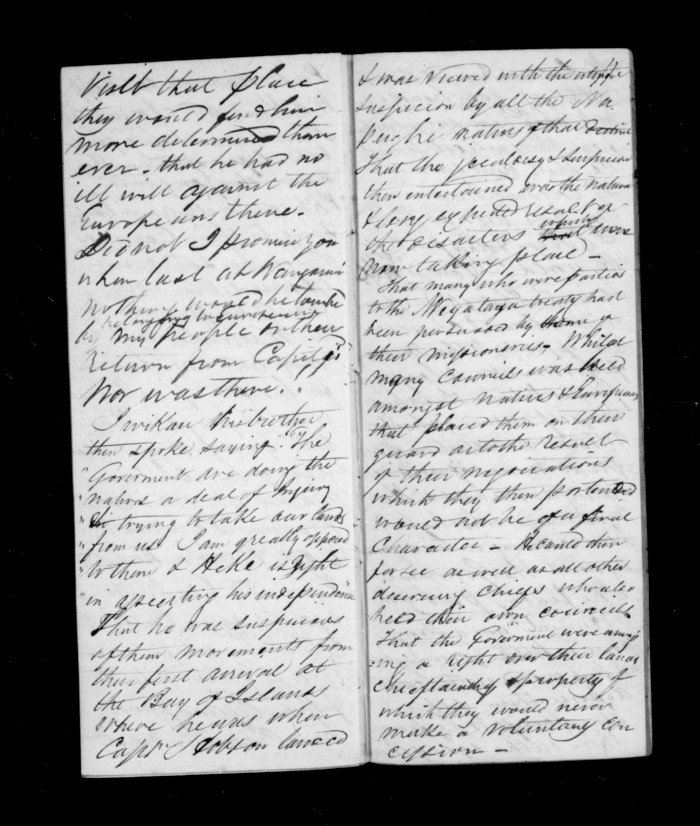 Visit that place
they would find him
more determined than
ever - that he had no
ill will against the
Europeans there.
Did not I promise you
when last at Wanganui
nothing would be touched
belonging to Europeans
by my People on their
return from Capiti
Nor was there.
Iwikau his brother
then spoke saying "The
"Goverment are doing the
"natives a deal of Injury
" trying to take our lands
"from us I am greatly opposed
"to them & Heke is right
"in asserting his independence
That he was suspicious
of them movements from
their first arrival at
the Bay of Islands
where he was when
Captn Hobson landed
& was viewed with the
suspicion by all the Na
puighi natives & that
That the jealousy & suspicion
then entertained over the natives
the disasters which were
now taking place -
That many who were parties
to the treaty had
been persuaded by some of
their missionaries, Whilst
many Councils was held
amongst natives & Europeans
that placed them on their
guard as to the result
of their negociations
which they then portended
would not be of a final
Character - He could then
forsee as well as all other
descerning Chiefs who also
held their own councils
That the Goverment were assum
=ing a right over their lands
Chieftainship & property of
which they would never
make a voluntary con
cession -